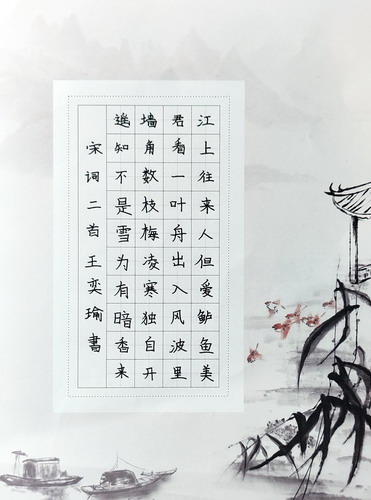 江上往来人但爱鲈鱼美
君看一叶舟出入风波里
墙角数枝梅凌寒独自开
遥知不是雪为有暗香来
宋词二首王奕瑜書